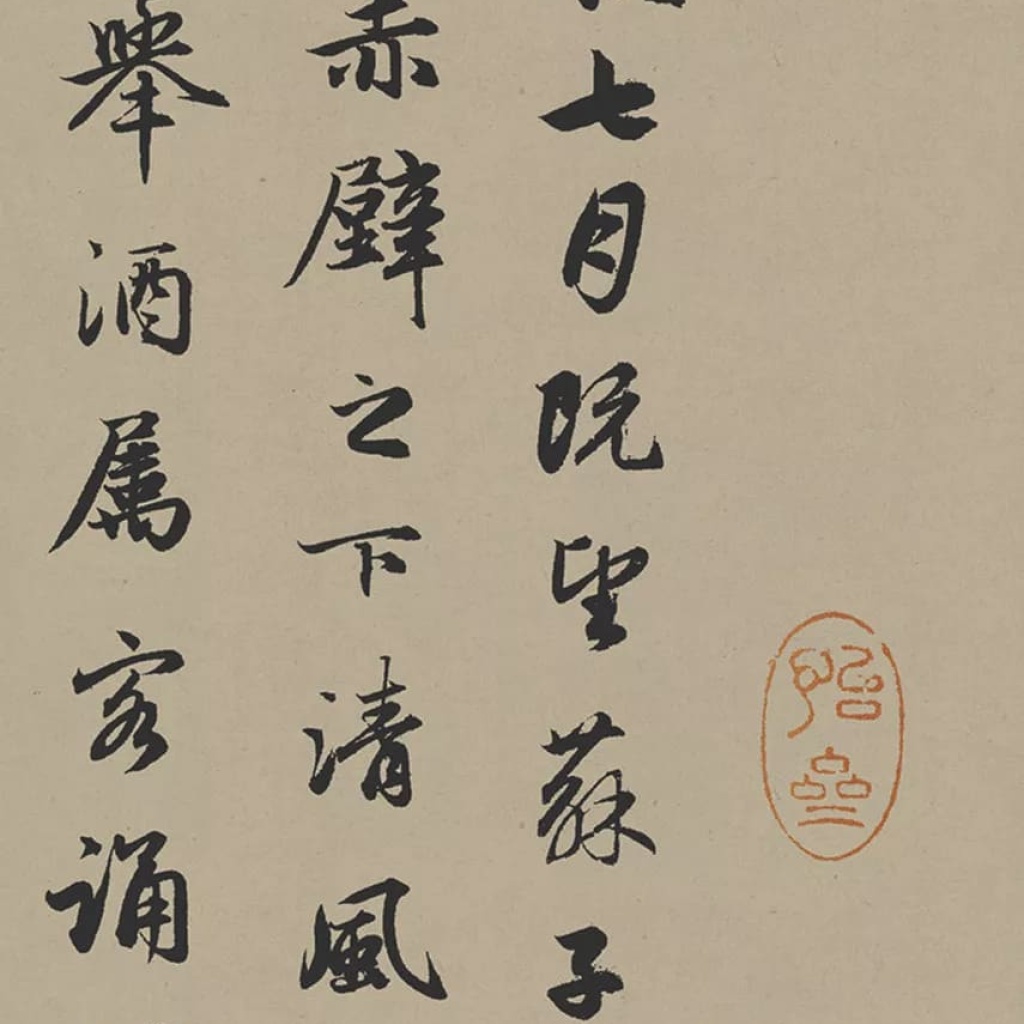 七月既望蘇子
赤壁之下清風
舉酒属客誦